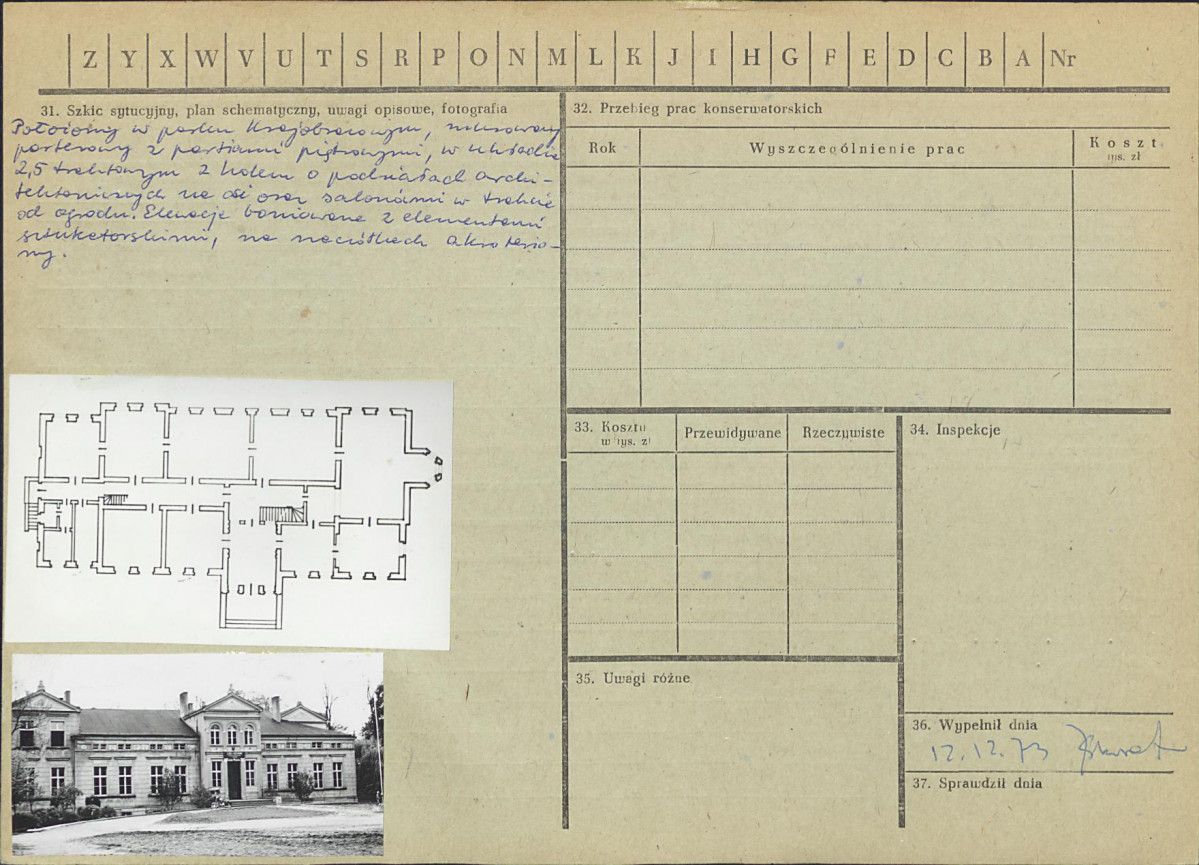 Z Y X W V U T S R P O N M L K J I H G F E D C B A Nr
31. Szkic sytucyjny, plan schematyczny, uwagi opisowe, fotografia
Położony w parku krajobrazowym, murowany
parterowy z partiami piętrowymi, w układzie
2,5 traktowym z holem o podziałach archi-
tektonicznych na osi oraz salonami w trakcie
od ogrodu. Elewacje boniowane z elementami
sztukatorskimi, na naczółkach akroterio-
ny.
32. Przebieg prac konserwatorskich
Rok
Wyszczególnienie prac
Koszt
tys. zł
33. Koszty
w tys. zł
Przewidywane
Rzeczywiste
34. Inspekcje
35. Uwagi różne
36. Wypełnił dnia
12.12.73
37. Sprawdził dnia